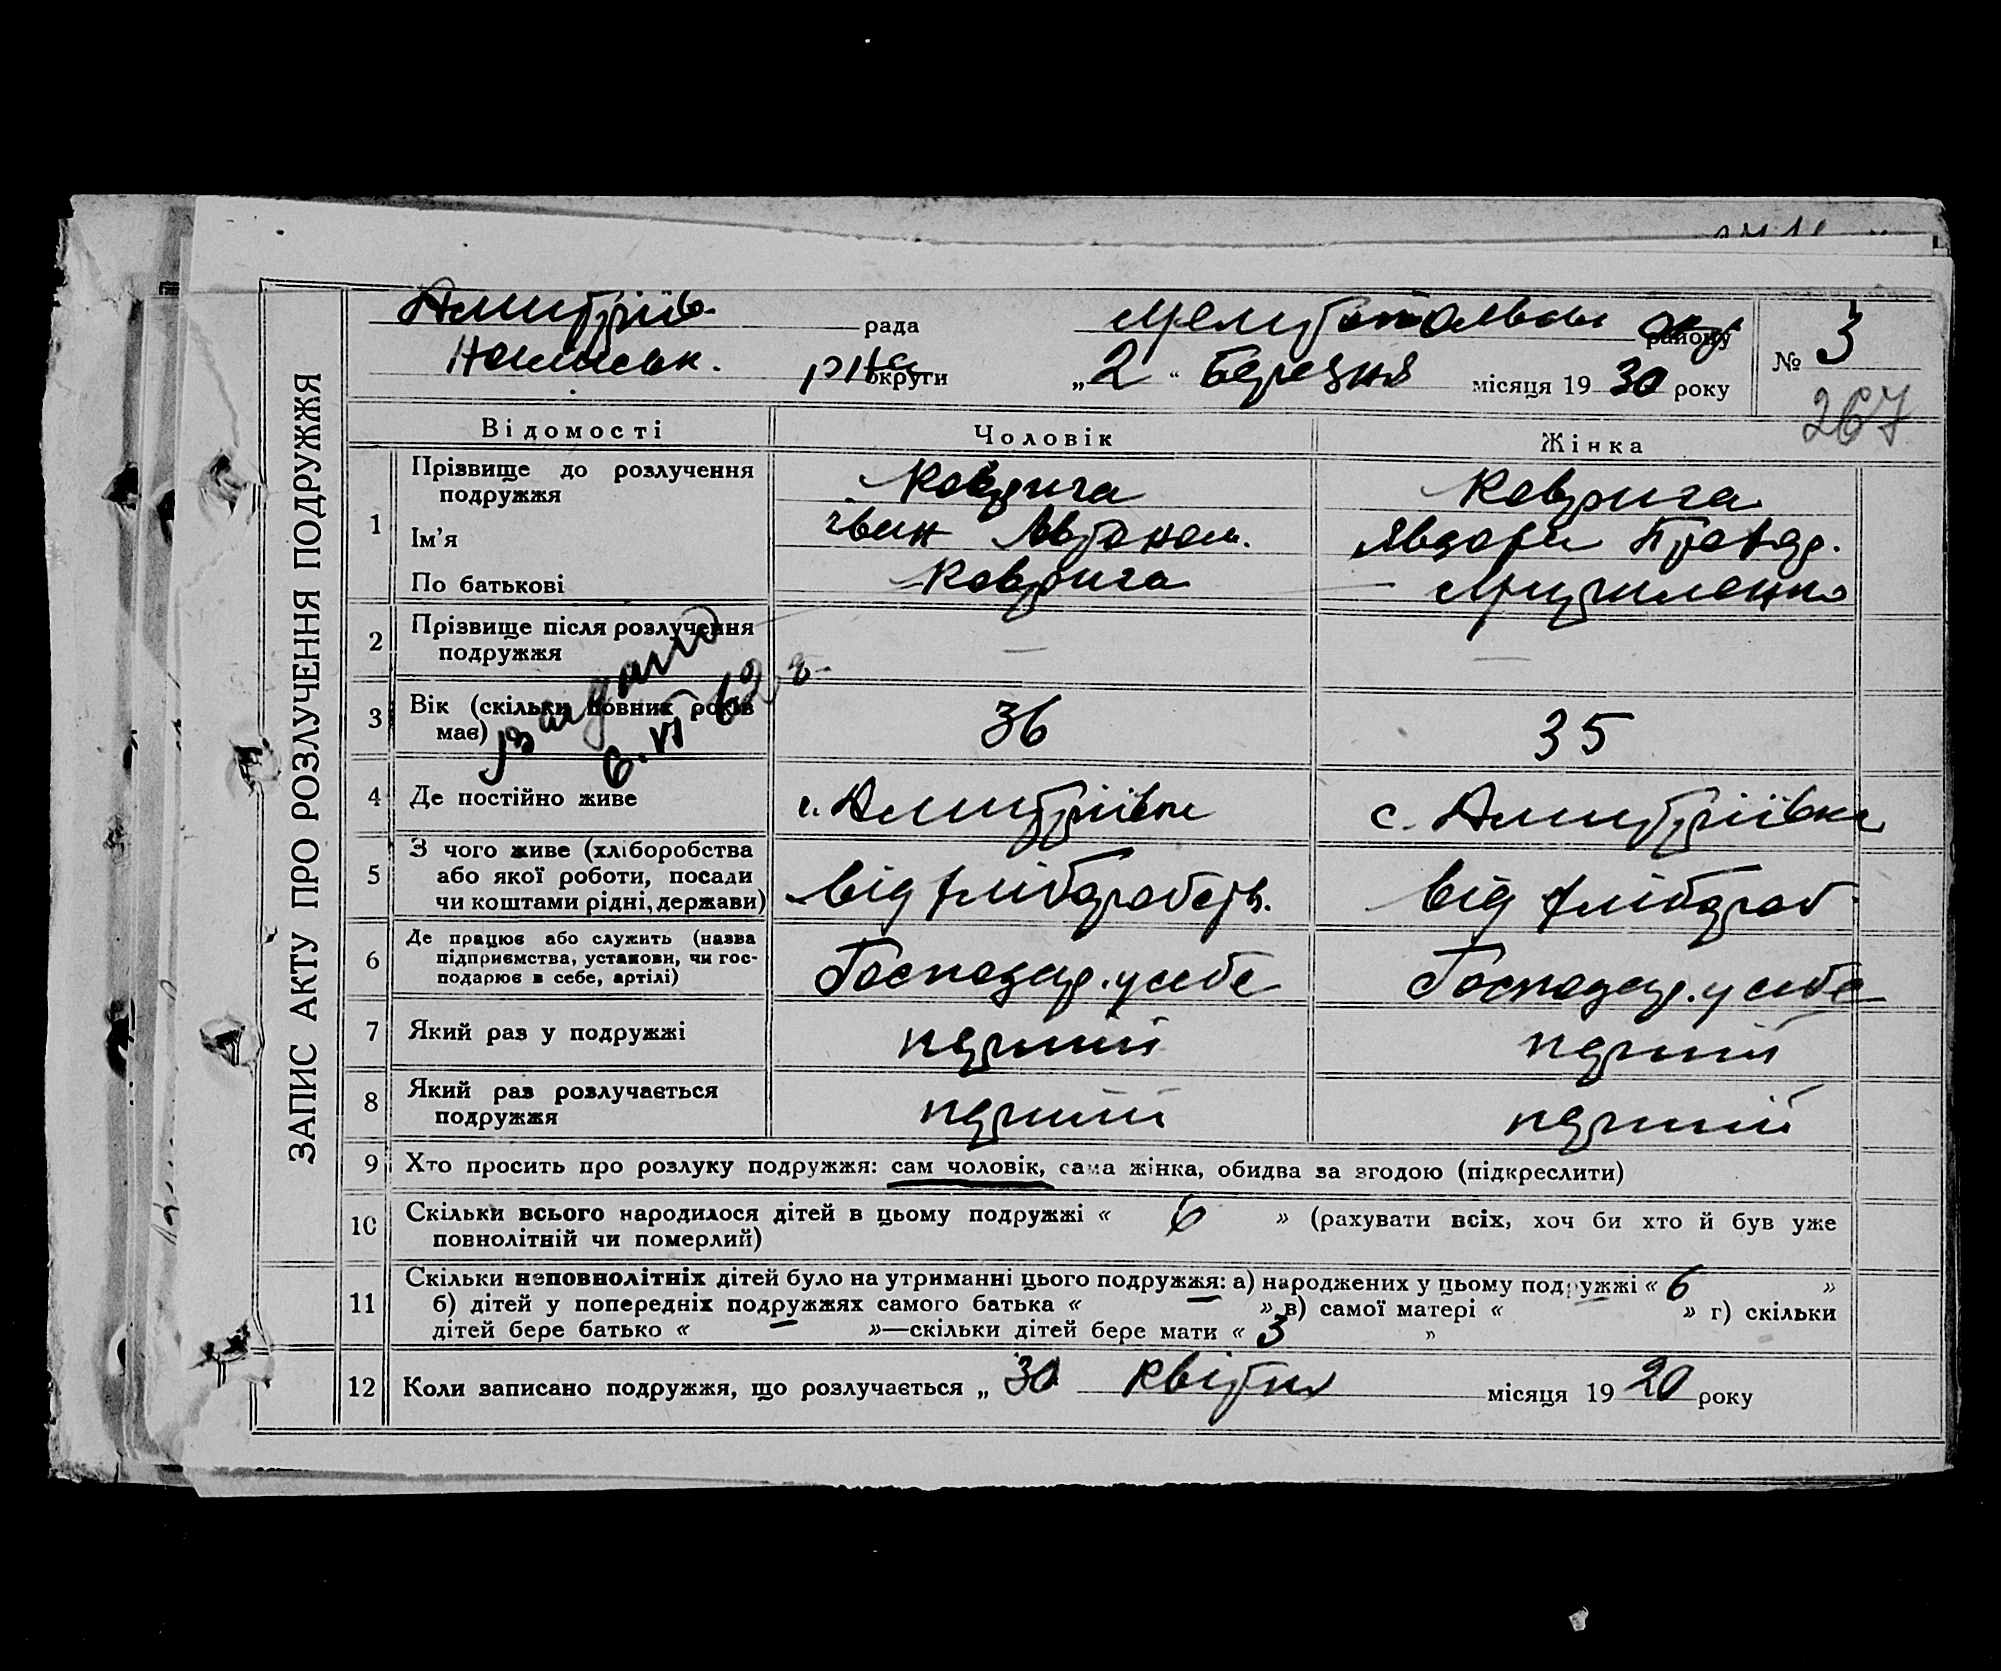 ЗАПИС АКТУ ПРО РОЗЛУЧЕННЯ ПОДРУЖЖЯ
Дмитріїв. рада Мелітопольськ району
округи „ 2 “ Березня місяця 19 30 року
№ 3
267
Відомості Чоловік Жінка
1 Прізвище до розлучення подружжя Коврига Коврига
Ім'я Іван Автоном. Явдоха
По батькові Коврига
2 Прізвище після розлучення подружжя — —
3 Вік (скільки повних років має) 36 35
видано
6. VI 62 г.
4 Де постійно живе с. Дмитріївки с. Дмитріївка
5 З чого живе (хліборобства або якої роботи, посади чи коштами рідні, держави) від хліборобств. від хлібороб.
6 Де працює або служить (назва підприємства, установи, чи господарює в себе, артілі) Господар. у себе Господар. у себе
7 Який раз у подружжі перший перший
8 Який раз розлучається подружжя перший перший
9 Хто просить про розлуку подружжя: сам чоловік, сама жінка, обидва за згодою (підкреслити)
10 Скільки всього народилося дітей в цьому подружжі « 6 » (рахувати всіх, хоч би хто й був уже
повнолітній чи померлий)
11 Скільки неповнолітніх дітей було на утриманні цього подружжя: а) народжених у цьому подружжі « 6 »
б) дітей у попередніх подружжях самого батька « » в) самої матері « » г) скільки
дітей бере батько « »—скільки дітей бере мати « 3 »
12 Коли записано подружжя, що розлучається „ 30 квітня місяця 19 20 року